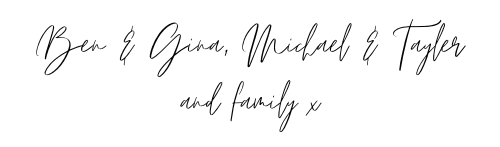 Ben & Gina, Michael & Tayler
and family x